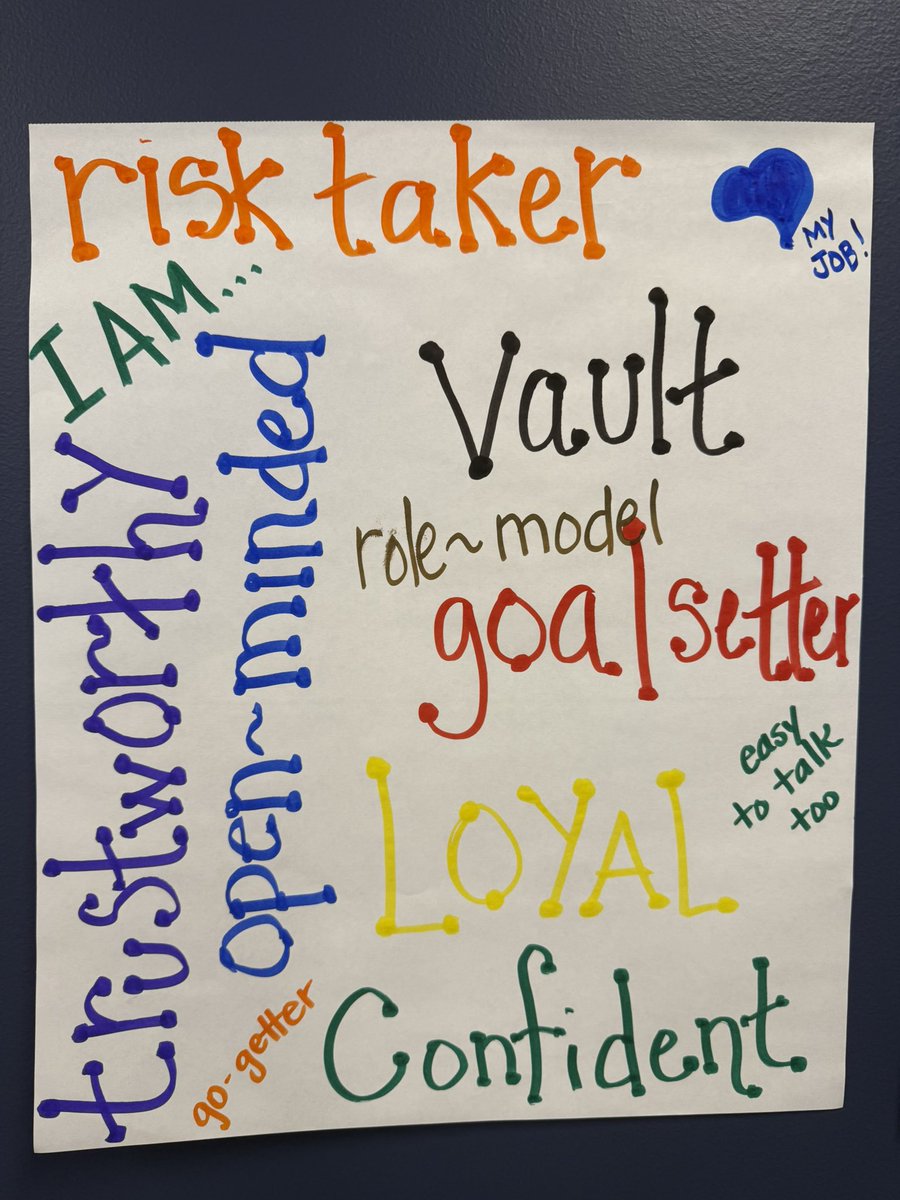 risk taker
MY
JOB!
I AM...
Vault
trustworthy
open~minded
role~model
goal setter
easy
to talk
too
LOYAL
go-getter
Confident